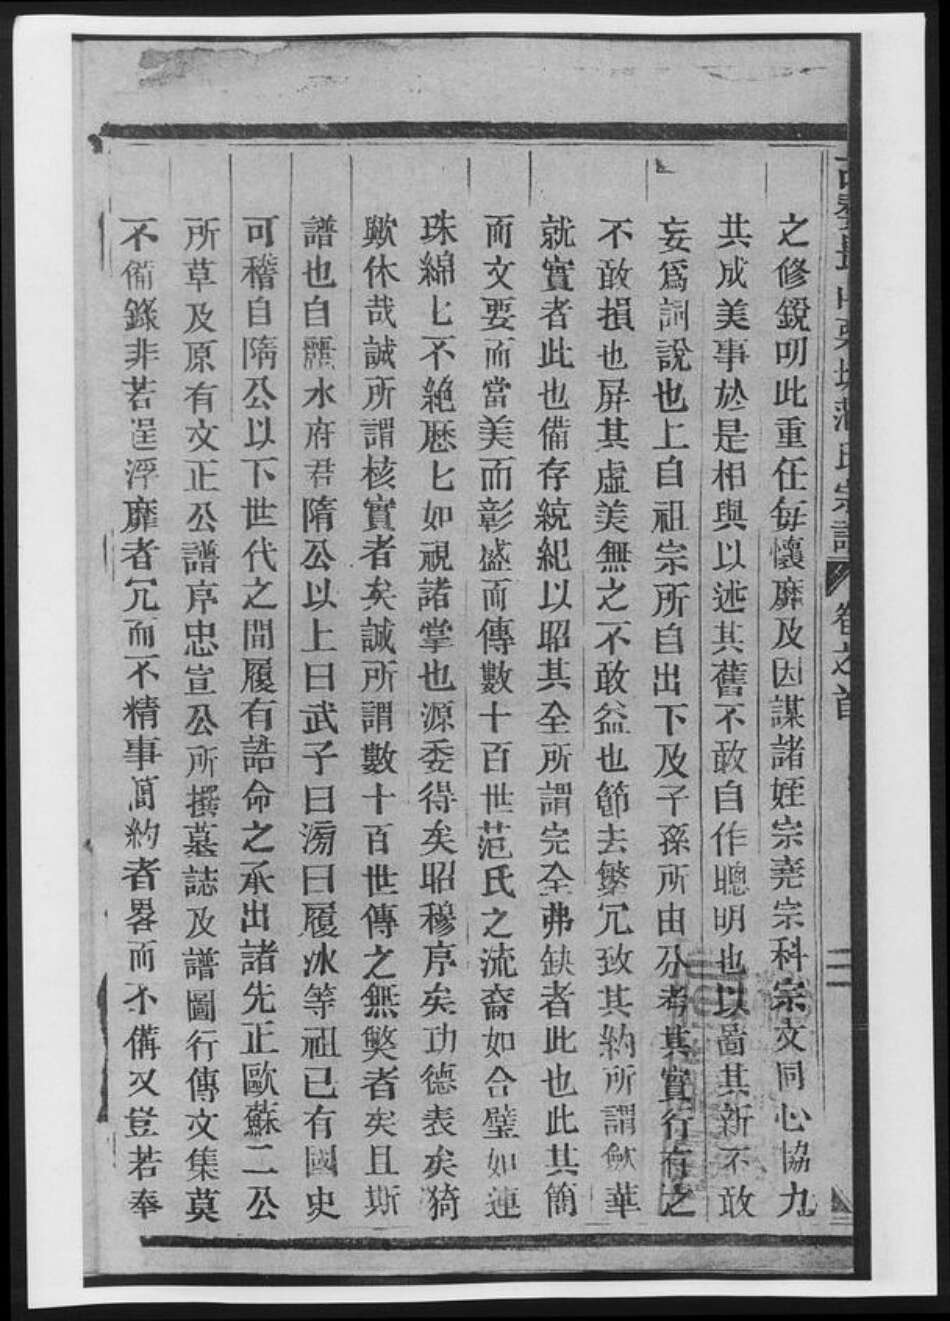 氏宗譜 卷之首
之修銳明此重任每懷靡及因謀諸姪宗堯宗科宗文同心協力
共成美事於是相與以述其舊不敢自作聰明也以啚其新不敢
妄爲詞說也上自祖宗所自出下及子孫所由分考其實行有之
不敢損也屏其虛美無之不敢益也節去繁冗致其約所謂斂華
就實者此也備存統紀以昭其全所謂完全弗缺者此也此其簡
而文要而當美而彰盛而傳數十百世范氏之流裔如合璧如連
珠綿匕不絶歷匕如視諸掌也源委得矣昭穆序矣功德表矣猗
歟休哉誠所謂核實者矣誠所謂數十百世傳之無斁者矣且斯
譜也自麗水府君隋公以上曰武子曰滂曰履冰等祖已有國史
可稽自隋公以下世代之間履有誥命之承出諸先正歐蘇二公
所草及原有文正公譜序忠宣公所撰墓誌及譜圖行傳文集莫
不備錄非若逞浮靡者冗而不精事簡約者畧而不備又豈若奉